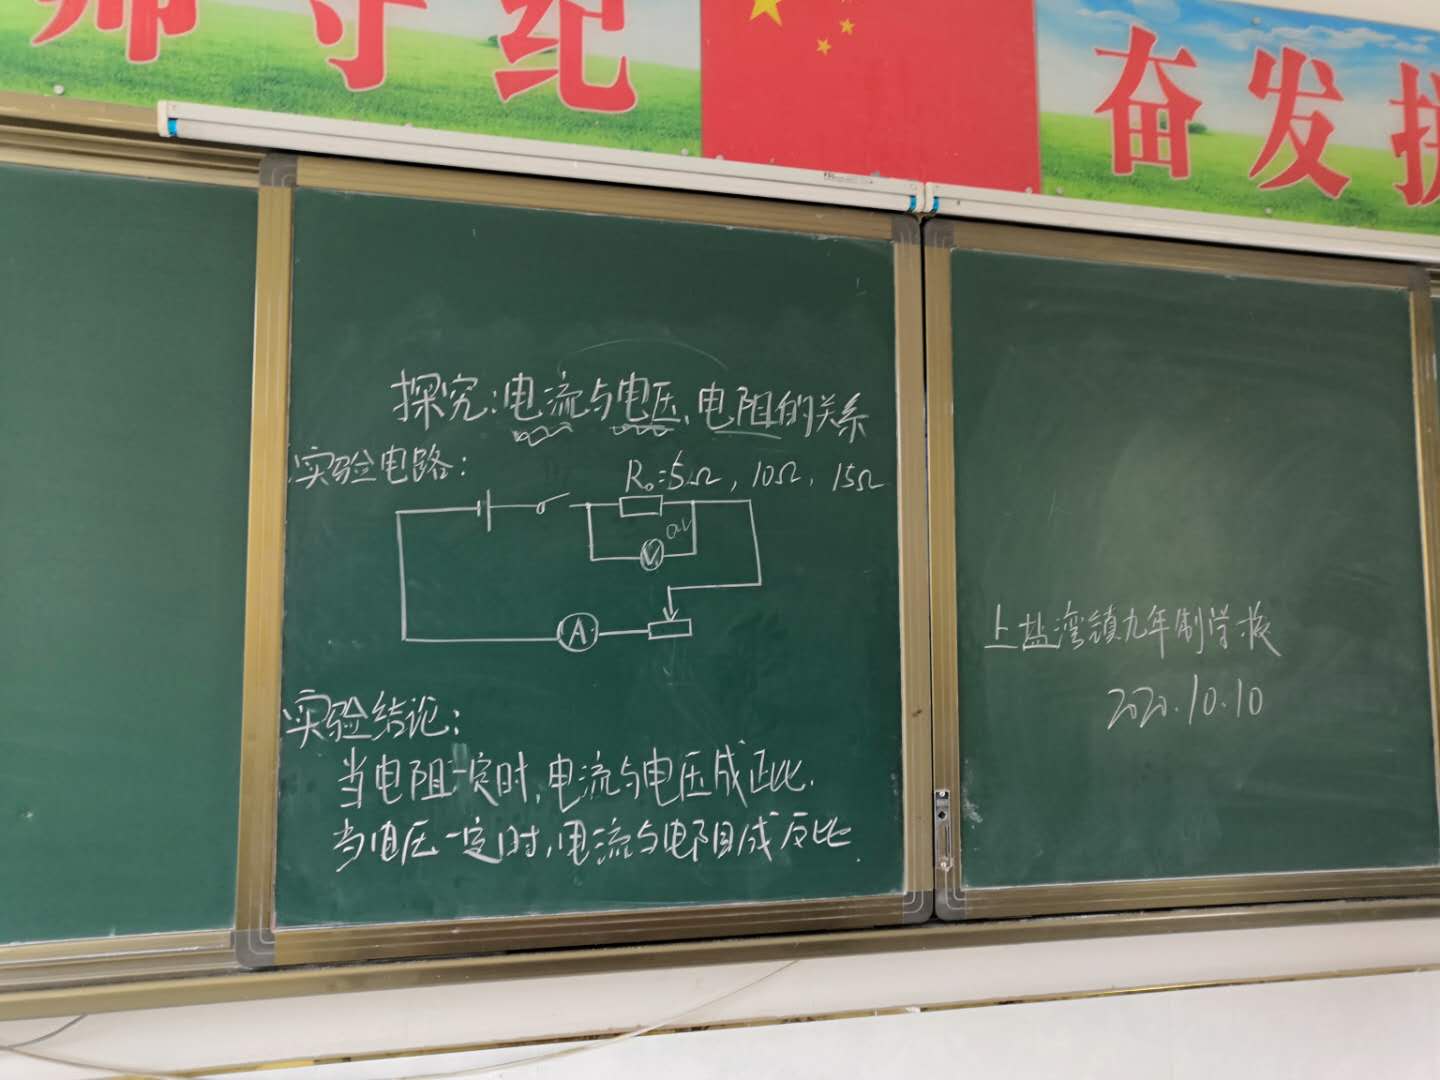 师守纪
奋发拼
探究:电流与电压、电阻的关系
实验电路:
R₀=5Ω, 10Ω, 15Ω
V
A
实验结论:
当电阻一定时,电流与电压成正比.
当电压一定时,电流与电阻成反比.
上盐湾镇九年制学校
2020.10.10